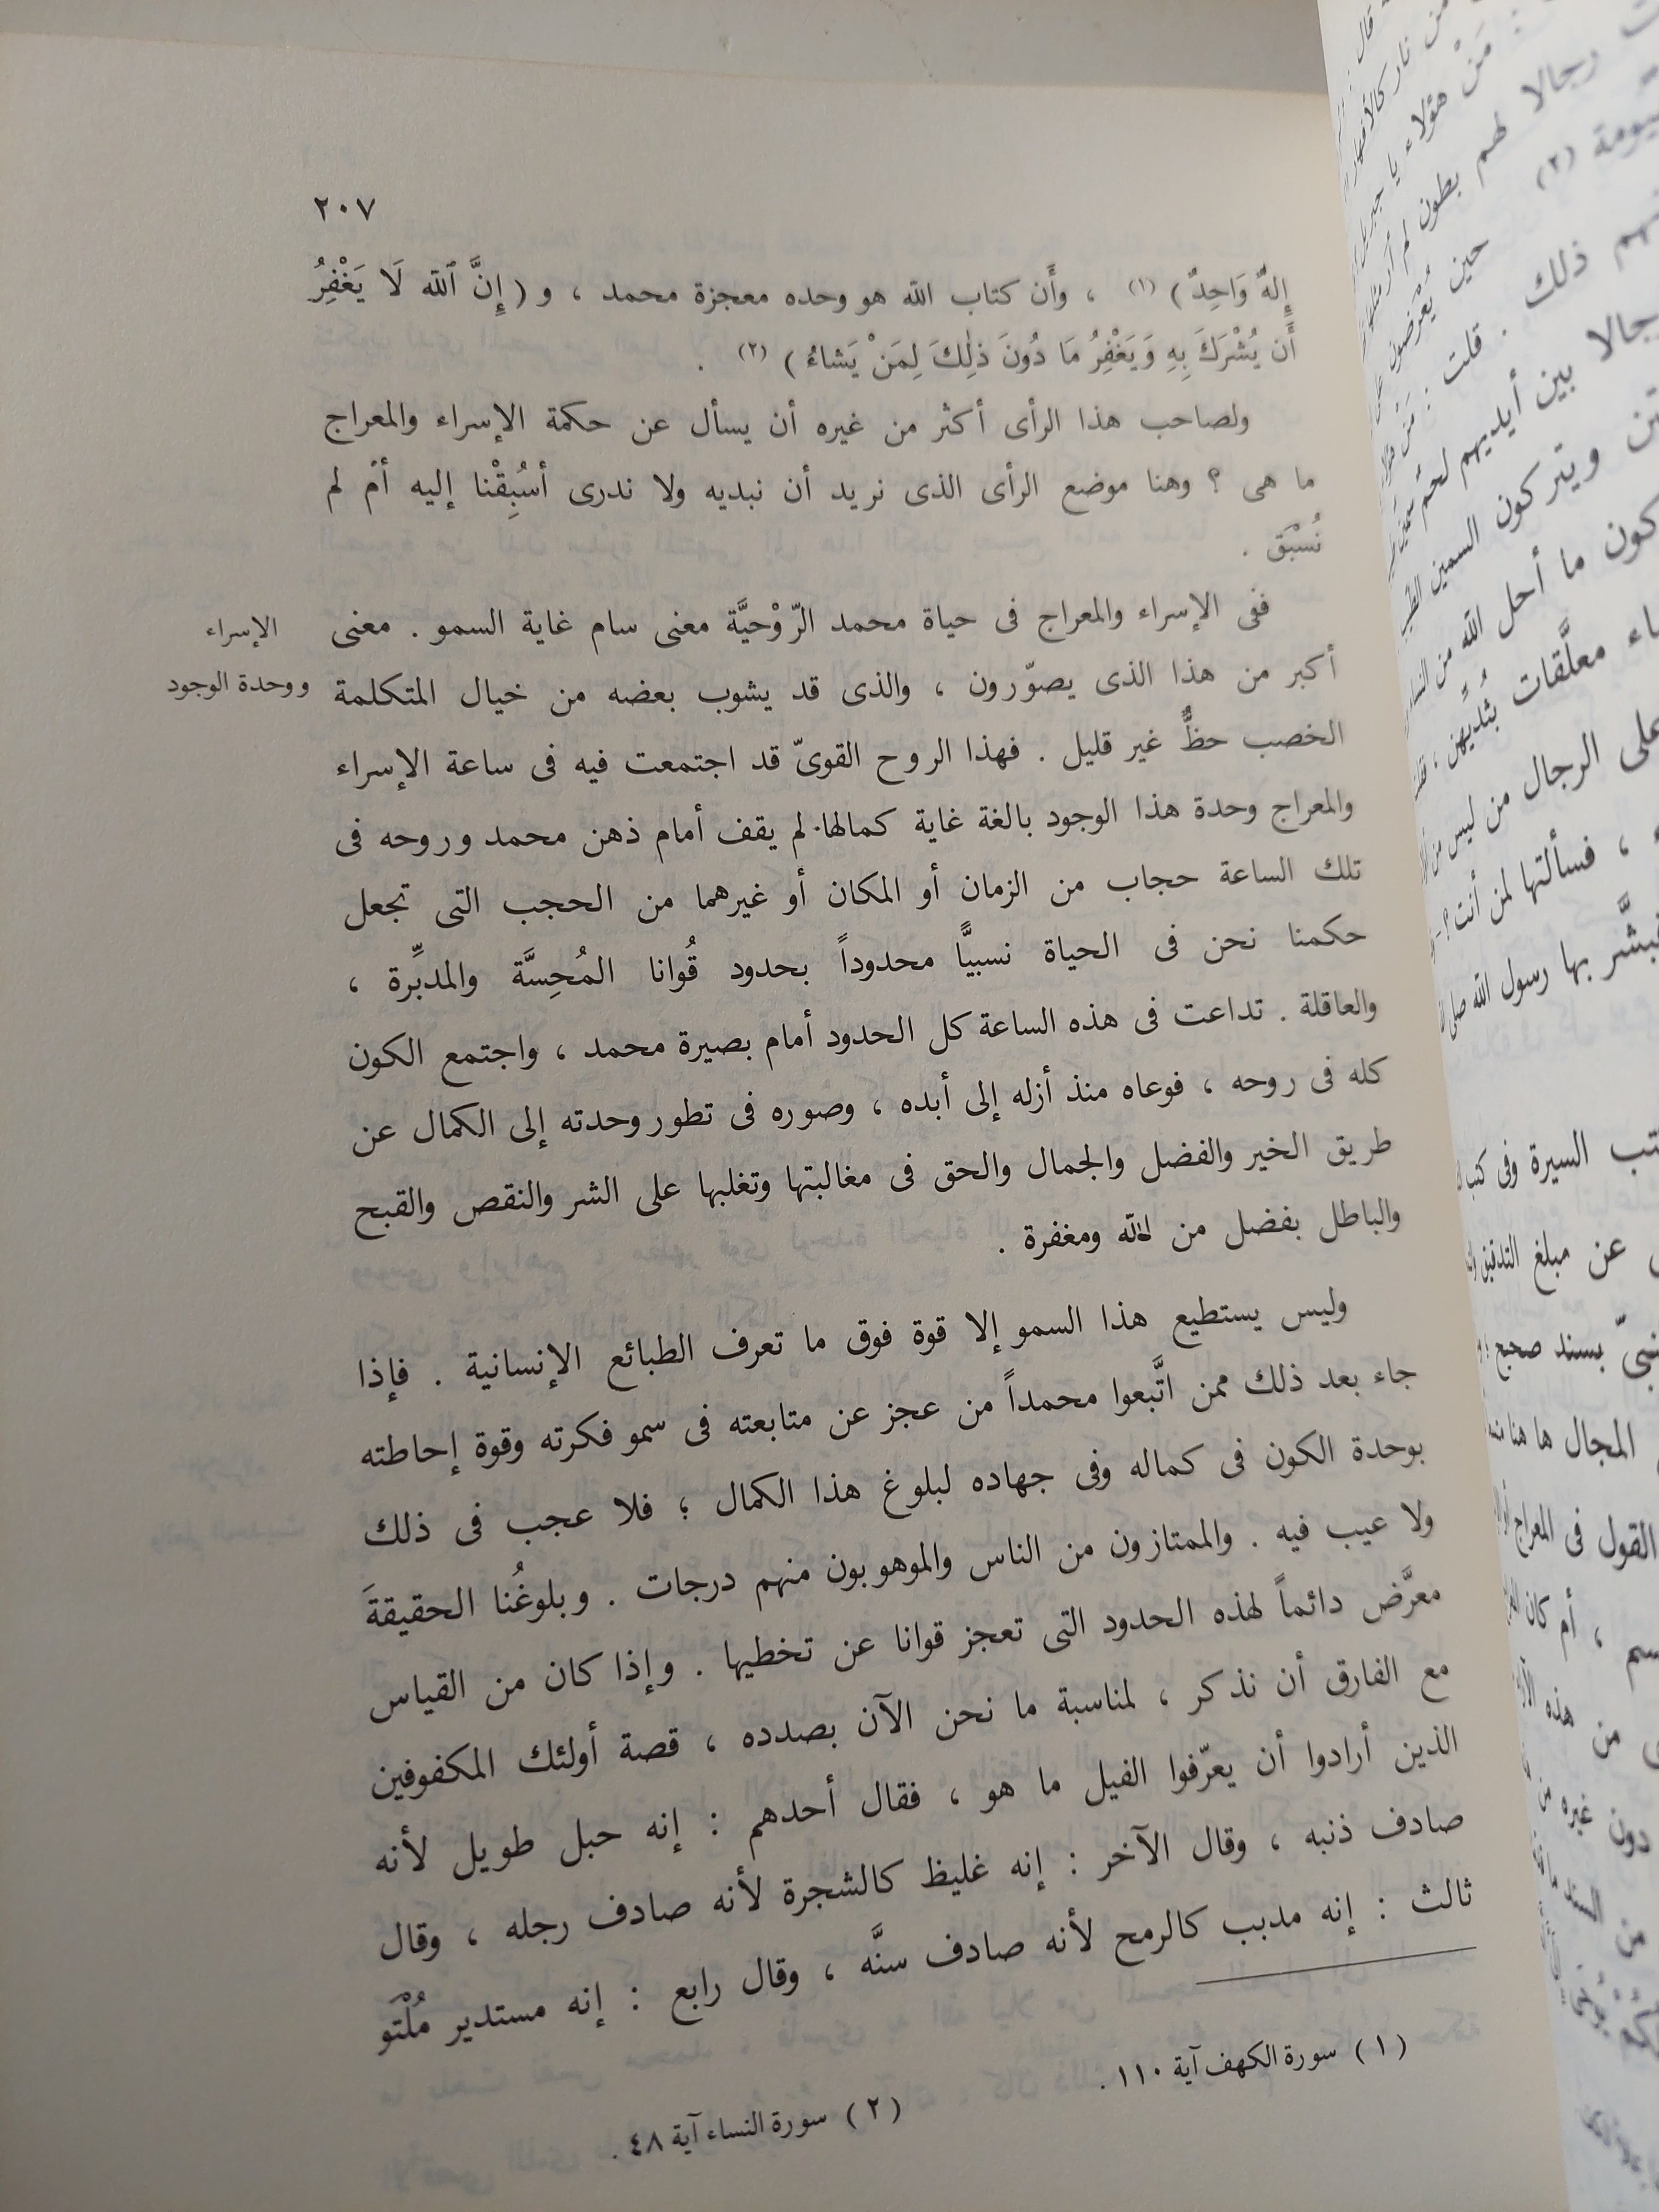 ٢٠٧
إِلهٌ وَاحِدٌ ) (١) ، وأَن كتاب الله هو وحده معجزة محمد ، و ( إِنَّ ٱلله لَا يَغْفِرُ
أَن يُشْرَكَ بِهِ وَيَغْفِرُ مَا دُونَ ذلِكَ لِمَنْ يَشاءُ ) (٢) .
ولصاحب هذا الرأى أكثر من غيره أن يسأل عن حكمة الإسراء والمعراج
ما هى ؟ وهنا موضع الرأى الذى نريد أن نبديه ولا ندرى أسُبِقْنا إليه أمْ لم
نُسْبَق .
ففى الإسراء والمعراج فى حياة محمد الرّوْحيَّة معنى سام غاية السمو . معنى
أكبر من هذا الذى يصوّرون ، والذى قد يشوب بعضه من خيال المتكلمة
الخصب حظٌّ غير قليل . فهذا الروح القوىّ قد اجتمعت فيه فى ساعة الإسراء
والمعراج وحدة هذا الوجود بالغة غاية كمالها. لم يقف أمام ذهن محمد وروحه فى
تلك الساعة حجاب من الزمان أو المكان أو غيرهما من الحجب التى تجعل
حكمنا نحن فى الحياة نسبيًّا محدوداً بحدود قُوانا المُحِسَّة والمدبِّرة ،
والعاقلة . تداعت فى هذه الساعة كل الحدود أمام بصيرة محمد ، واجتمع الكون
كله فى روحه ، فوعاه منذ أزله إلى أبده ، وصوره فى تطور وحدته إلى الكمال عن
طريق الخير والفضل والجمال والحق فى مغالبتها وتغلبها على الشر والنقص والقبح
والباطل بفضل من الله ومغفرة .
وليس يستطيع هذا السمو إلا قوة فوق ما تعرف الطبائع الإنسانية . فإذا
جاء بعد ذلك ممن اتَّبعوا محمداً من عجز عن متابعته فى سمو فكرته وقوة إحاطته
بوحدة الكون فى كماله وفى جهاده لبلوغ هذا الكمال ؛ فلا عجب فى ذلك
ولا عيب فيه . والممتازون من الناس والموهوبون منهم درجات . وبلوغُنا الحقيقةَ
معرَّض دائماً لهذه الحدود التى تعجز قوانا عن تخطيها . وإذا كان من القياس
مع الفارق أن نذكر ، لمناسبة ما نحن الآن بصدده ، قصة أولئك المكفوفين
الذين أرادوا أن يعرّفوا الفيل ما هو ، فقال أحدهم : إنه حبل طويل لأنه
صادف ذنبه ، وقال الآخر : إنه غليظ كالشجرة لأنه صادف رجله ، وقال
ثالث : إنه مدبب كالرمح لأنه صادف سنَّه ، وقال رابع : إنه مستدير مُلْتَو
الإسراء
ووحدة الوجود
( ١ ) سورة الكهف آية ١١٠ .
( ٢ ) سورة النساء آية ٤٨ .
رجالا لهم بطون لم أر
ذلك . قلت :
بين أيديهم لحم
ويتركون السمين الطيب
ما أحل الله من النساء
معلَّقات بثُديِّهن ،
على الرجال من ليس من
، فسألتها لمن أنت ؟
فبشَّر بها رسول الله صلى
السيرة وفى كتب
عن مبلغ التدقيق
بسند صحيح
المجال ها هنا
القول فى المعراج
، أم كان
من هذه
دون غيره من
من السند